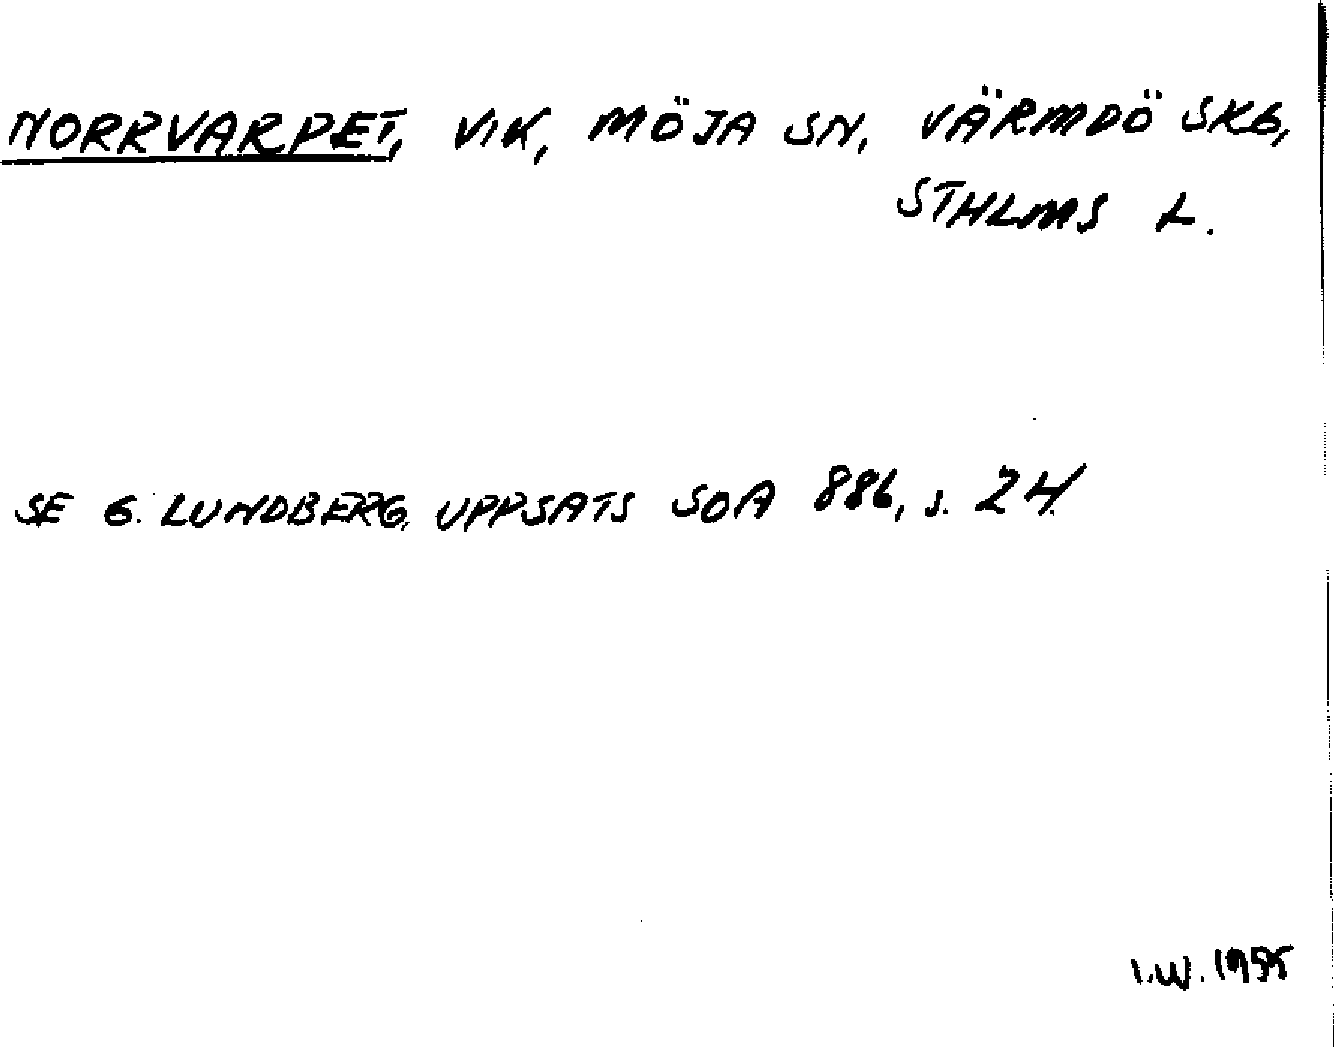 NORRVARPET, VIK, MÖJA SN, VÄRMDÖ SKG,
STHLMS L.
SE G. LUNDBERG, UPPSATS SOA 886, s. 24.
I.W. 1955